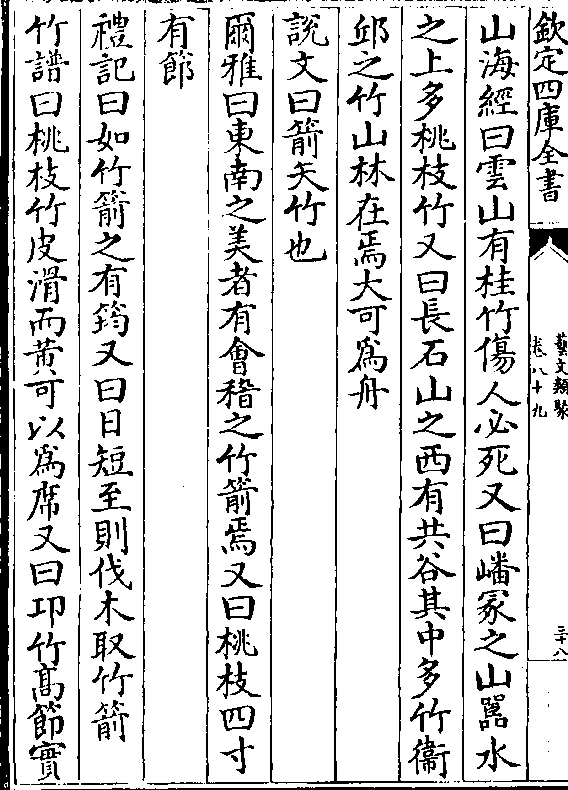 欽定四庫全書
藝文類聚
卷八十九
三十八
山海經曰雲山有桂竹傷人必死又曰嶓冢之山嚻水
之上多桃枝竹又曰長石山之西有共谷其中多竹衞
邱之竹山林在焉大可爲舟
說文曰箭矢竹也
爾雅曰東南之美者有會稽之竹箭焉又曰桃枝四寸
有節
禮記曰如竹箭之有筠又曰日短至則伐木取竹箭
竹譜曰桃枝竹皮滑而黄可以爲席又曰卭竹髙節實